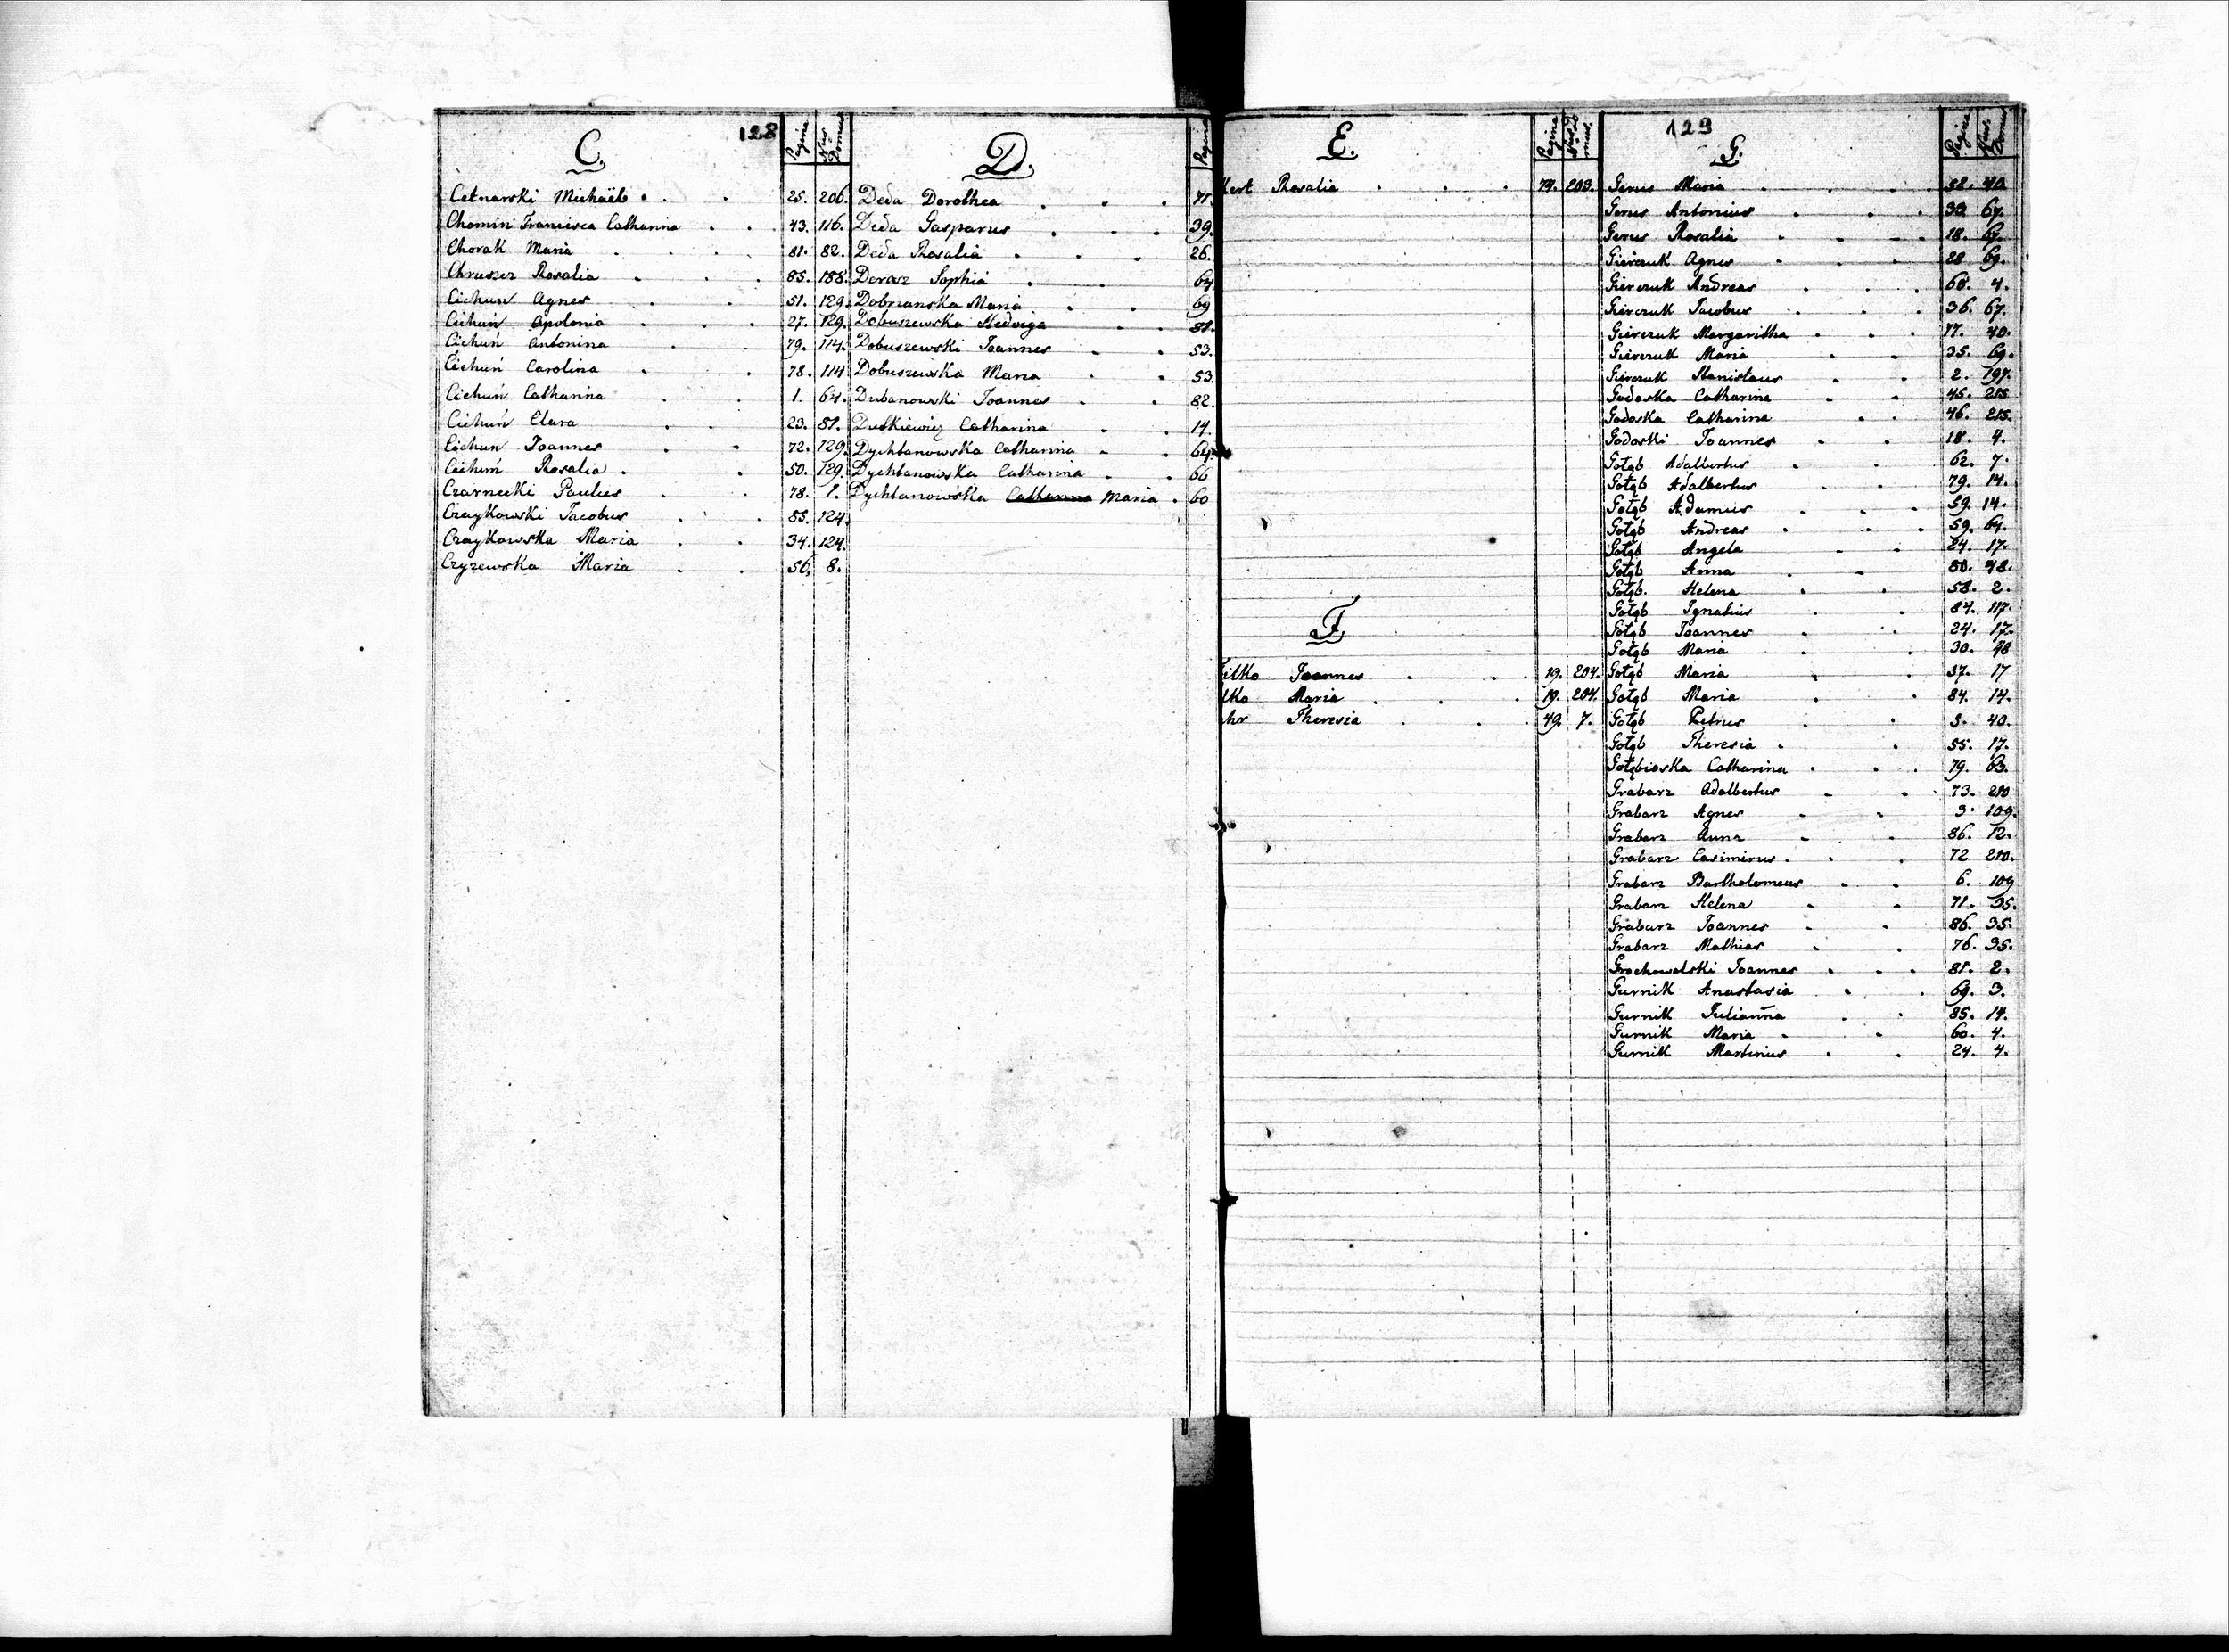 128
C. Pagina Nus Domus
Cetnarski Michaël 25. 206.
Chomin Francisca Catharina 43. 116.
Chorak Maria 81. 82.
Chruszcz Rosalia 85. 188.
Cichuń Agnes 51. 129.
Cichuń Apolonia 27. 129.
Cichuń Antonina 79. 114.
Cichuń Carolina 78. 114
Cichuń Catharina 1. 64.
Cichuń Clara 23. 81.
Cichuń Joannes 72. 129.
Cichuń Rosalia 50. 129.
Czarnecki Paulus 78. 1.
Czaykowski Jacobus 85. 124.
Czaykowska Maria 34. 124.
Czyzewska Maria 56. 8.
D. Pagina
Deda Dorothea 71
Deda Gasparus 39.
Deda Rosalia 26.
Deraz Sophia 64
Dobrzanska Maria 69
Dobuszewska Hedviga 81.
Dobuszewski Joannes 53.
Dobuszewska Maria 53.
Dubanowski Joannes 82.
Dutkiewicz Catharina 14.
Dychtanowska Catharina 64.
Dychtanowska Catharina 66
Dychtanowska Catharina Maria 60
129
E. Pagina Nus Domus.
kert Rosalia 74. 203.
F.
Filko Joannes 19. 204.
lko Maria 19. 204.
hr Theresia 49. 7.
G. Pagina Nus. Domus
Gerus Maria 52. 40.
Gerus Antonius 33. 67.
Gerus Rosalia 18. 67.
Gierczuk Agnes 28 69.
Gierczuk Andreas 68. 4.
Gierczuk Jacobus 36. 67.
Gierczuk Margaritha 77. 40.
Gierczuk Maria 35. 69.
Gierczuk Stanislaus 2. 197.
Godoska Catharina 45. 215.
Godoska Catharina 46. 215.
Godoski Joannes 18. 4.
Gołąb Adalbertus 62. 7.
Gołąb Adalbertus 79. 14.
Gołąb Adamus 59. 14.
Gołąb Andreas 59. 64.
Gołąb Angela 24. 17.
Gołąb Anna 80. 48.
Gołąb Helena 58. 2.
Gołąb Ignatius 84. 117.
Gołąb Joannes 24. 17.
Gołąb Maria 30. 48
Gołąb Maria 37. 17
Gołąb Maria 84. 14.
Gołąb Petrus 3. 40.
Gołąb Theresia 55. 17.
Gołębioska Catharina 79. 63.
Grabarz Adalbertus 73. 210
Grabarz Agnes 3. 109.
Grabarz Anna 86. 12.
Grabarz Casimirus 72 210.
Grabarz Bartholomeus 6. 109
Grabarz Helena 71. 35.
Grabarz Joannes 86. 35.
Grabarz Mathias 76. 35.
Grochowalski Joannes 81. 2.
Gurnik Anastasia 69. 3.
Gurnik Julianna 85. 14.
Gurnik Maria 60. 4.
Gurnik Martinus 24. 4.